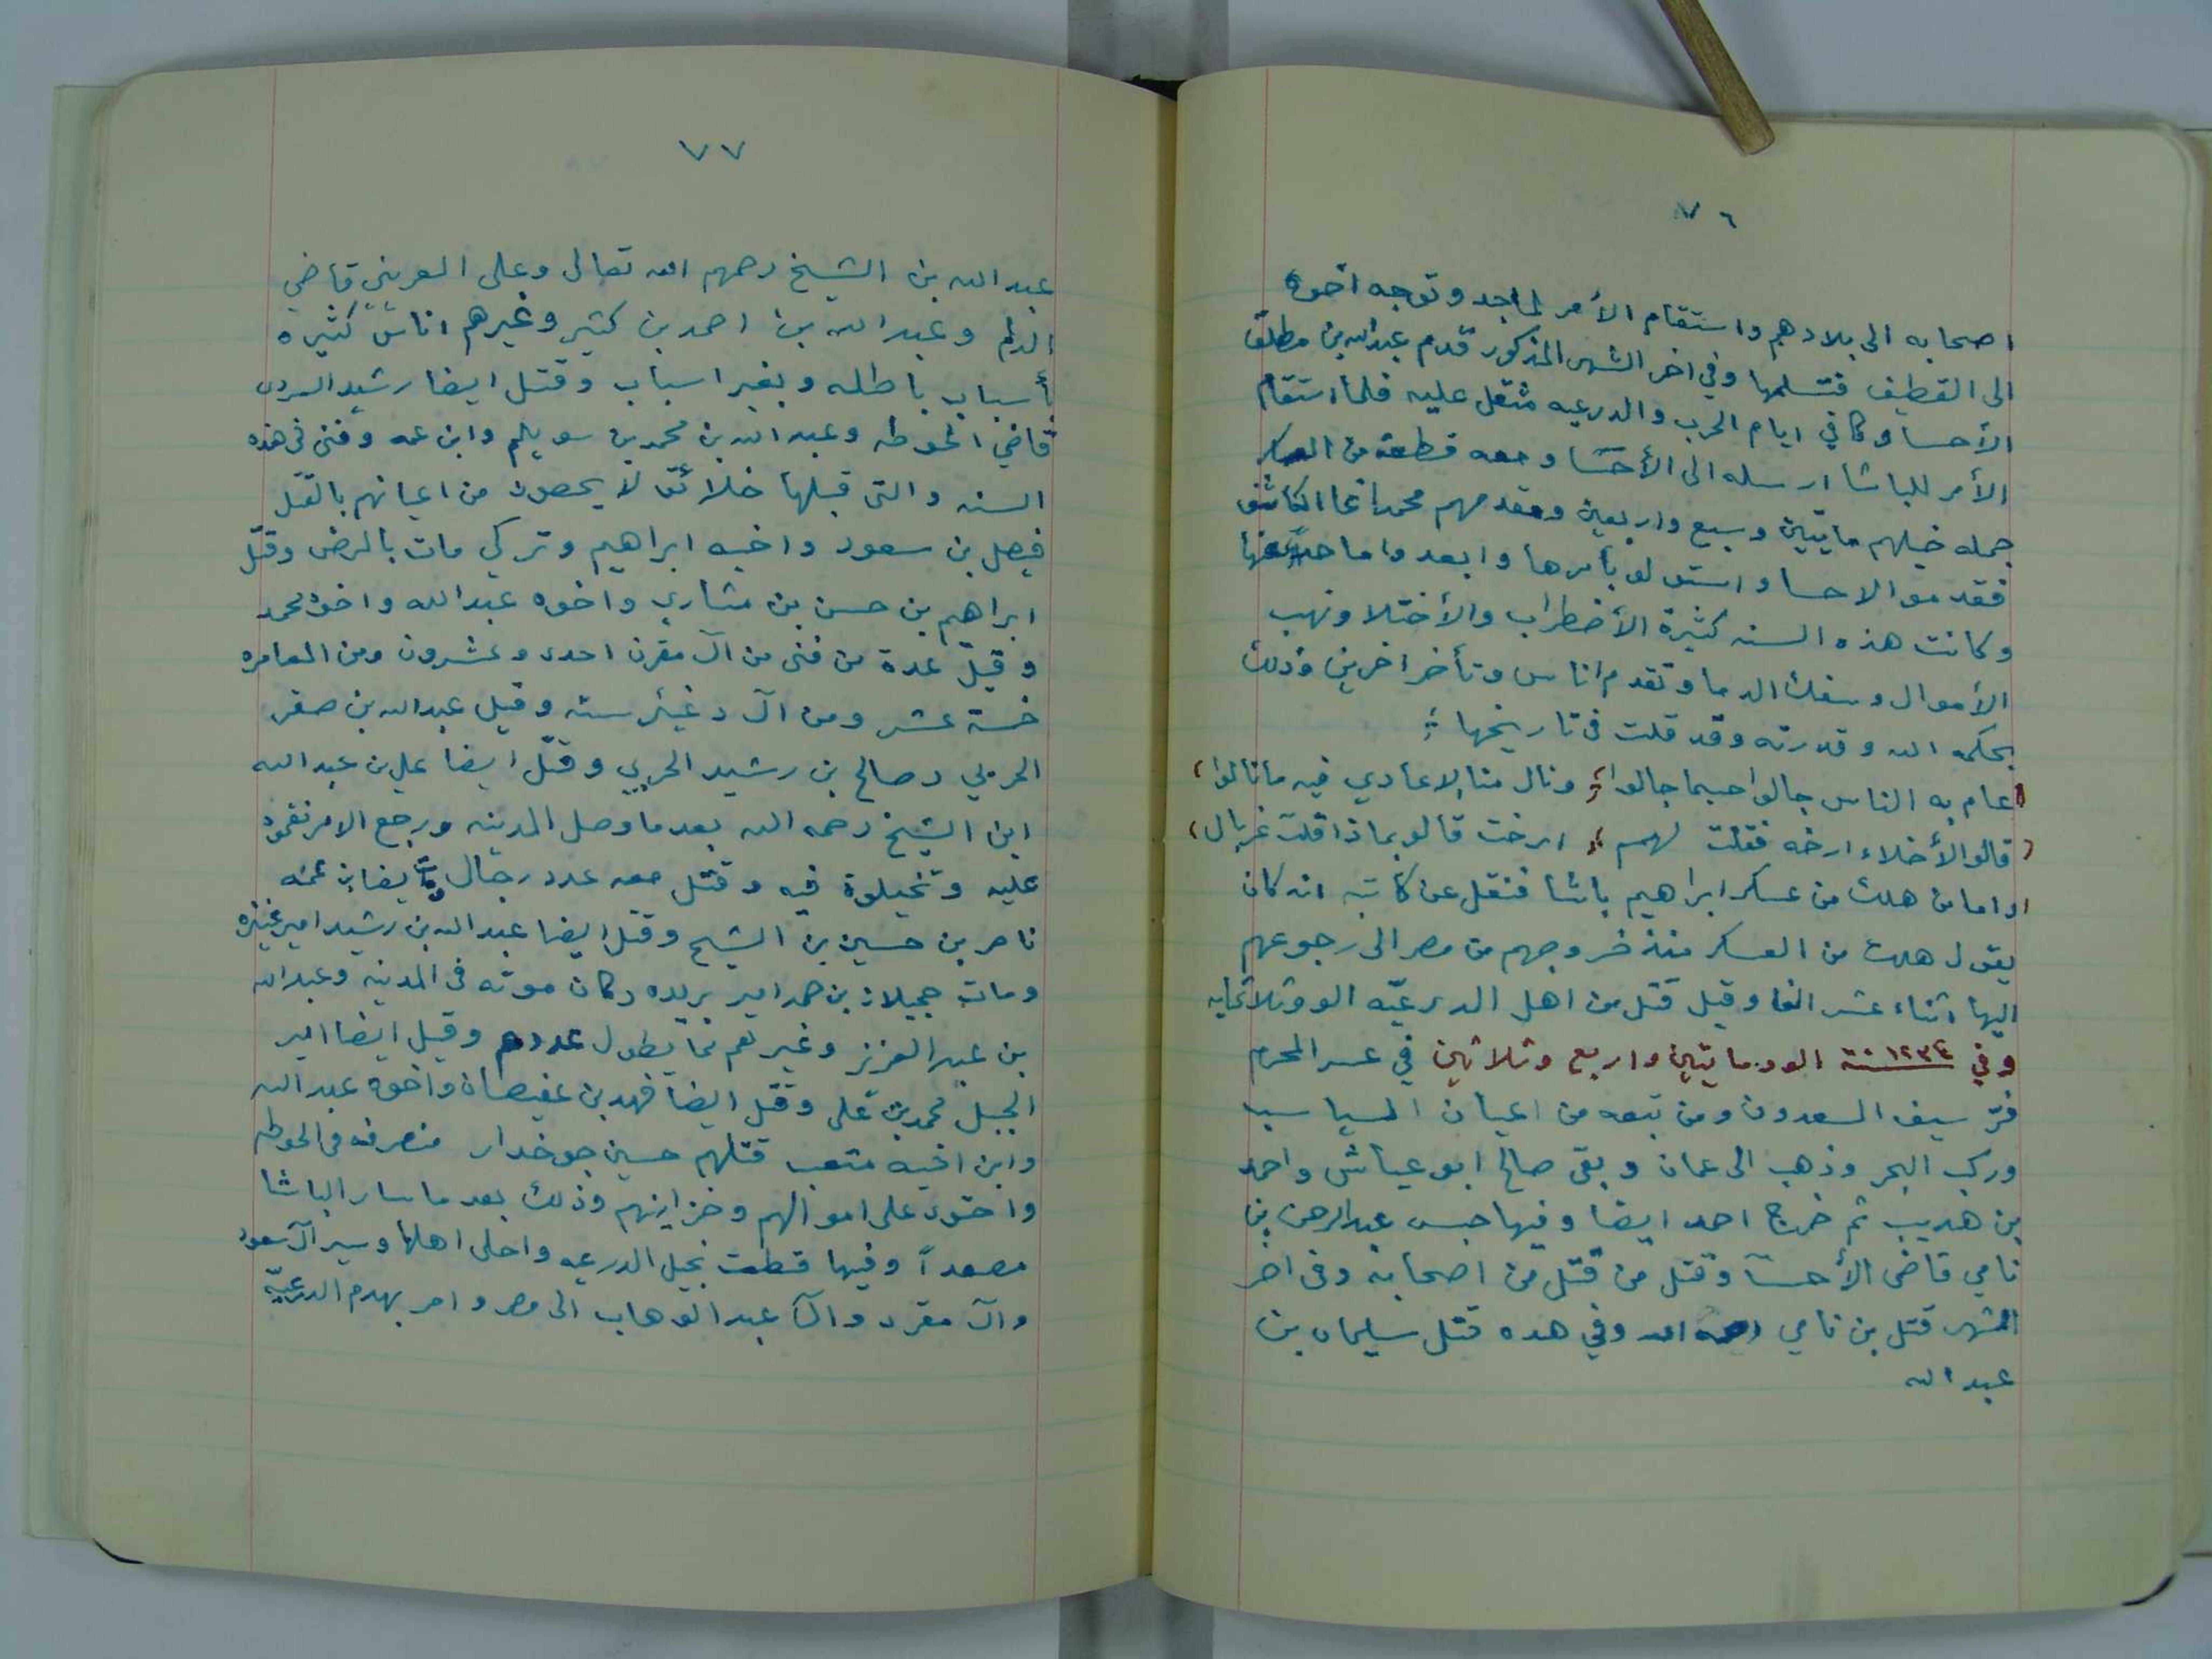 ٧٦
اصحابه الى بلادهم واستقام الأمر لماجد وتوجه اخوه
الى القطيف فتسلمها وفي اخر الشهر المذكور قدم عبدالله بن مطلق
الأحسا وكا في ايام الحرب والدرعيه مثقل عليه فلما استقام
الأمر للباشا ارسله الى الأحسا ومعه قطعة من العسكر
جمله خيلهم مايتين وسبع واربعين ومقدمهم محمد اغا الكاشف
فقدمو الاحسا واستولو بأسرها وابعدوا ماجد عنها
وكانت هذه السنه كثيرة الأضطراب والأختلا ونهب
الأموال وسفك الدما وتقدم اناس وتأخر اخرين وذلك
بحكمه الله وقدرته وقد قلت في تاريخها ؛
عام به الناس جالوا حسبما جالوا ؛ ونال منا الاعادي فيه ما نالوا ،
قالو الأخلاء ارخه فقلت لهم ؛ ارخت قالو بماذا قلت غربال ،
واما من هلك من عسكر ابراهيم باشا فنقل عن كاتبه انه كان
يقول هلك من العسكر منذ خروجهم من مصر الى رجوعهم
اليها اثناء عشر الفا وقيل قتل من اهل الدرعيّه الو وثلاثمايه
وفي ١٢٣٤ سنة الو ومايتين واربع وثلاثين في عسر المحرم
فرّ سيف السعدون ومن تبعه من اعيان السياسب
وركب البحر وذهب الى عمان وبقى صالح ابو عياش واحمد
بن هديب ثم خرج احمد ايضا وفيها حبس عبدالرحمن بن
نامي قاضى الأحسا وقتل من قتل من اصحابه وفى اخر
الشهر قتل بن نامي رحمه الله وفي هده قتل سليمان بن
عبدالله
٧٧
عبدالله بن الشيخ رحمهم الله تعالى وعلى العريني قاضي
الدلم وعبدالله بن احمد بن كثير وغيرهم اناس كثيره
بأسباب باطله وبغير اسباب وقتل ايضا رشيد السردى
قاضي الحوطه وعبدالله بن محمد بن سويلم وابن عمه وفنى في هذه
السنه والتى قبلها خلائق لا يحصون من اعيانهم بالقتل
فيصل بن سعود واخيه ابراهيم وتركي مات بالمرض وقتل
ابراهيم بن حسن بن مشاري واخوه عبدالله واخوه محمد
وقيل عدة من فنى من آل مقرن احدى وعشرون ومن المعامره
خمسة عشر ومن آل دغيثر سته وقيل عبدالله بن صقر
الحربي وصالح بن رشيد الحربي وقتل ايضا علي بن عبدالله
ابن الشيخ رحمه الله بعدما وصل المدينه ورجع الامر نقمود
عليه وتخيلوة فيه وقتل معه عدد رجال ايضا بن عمه
ناصر بن حسين بن الشيخ وقتل ايضا عبدالله بن رشيد امير عنيزه
ومات حجيلان بن حمد امير بريده وكان موته في المدينه وعبدالله
بن عبدالعزيز وغيرهم مما يطول عددهم وقيل ايضا امير
الجبل محمد بن على وقتل ايضا فهد بن عفيصان واخوه عبدالله
وابن اخيه متعب قتلهم حسين جوخدار منصرفه فى الحوطه
واحتوى على اموالهم وخزاينهم وذلك بعد ما سار الباشا
مصعداً وفيها قطعت نخيل الدرعيه واجلى اهلها وسير آل سعود
وآل مقرد وآل عبدالوهاب الى مصر وامر بهدم الدرعيّه